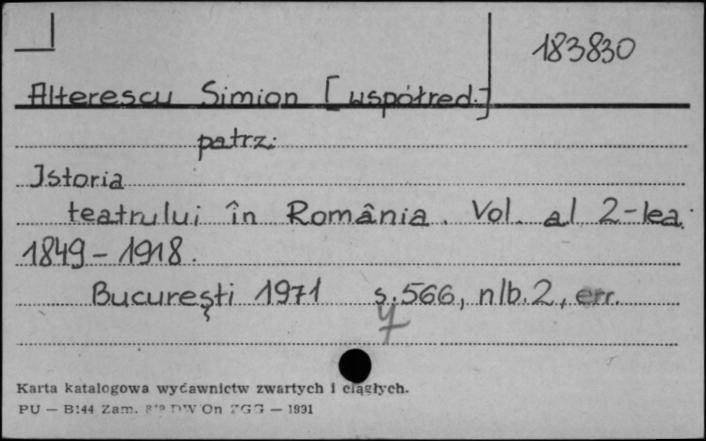 183830
Alterescu Simion [współred.]
patrz:
Istoria
teatrului în România. Vol. al 2-lea.
1849-1918.
Bucureşti 1971 s. 566, nlb. 2, err.
Karta katalogowa wydawnictw zwartych i ciągłych.
PU — B144 Zam. DW On ZGG — 1991